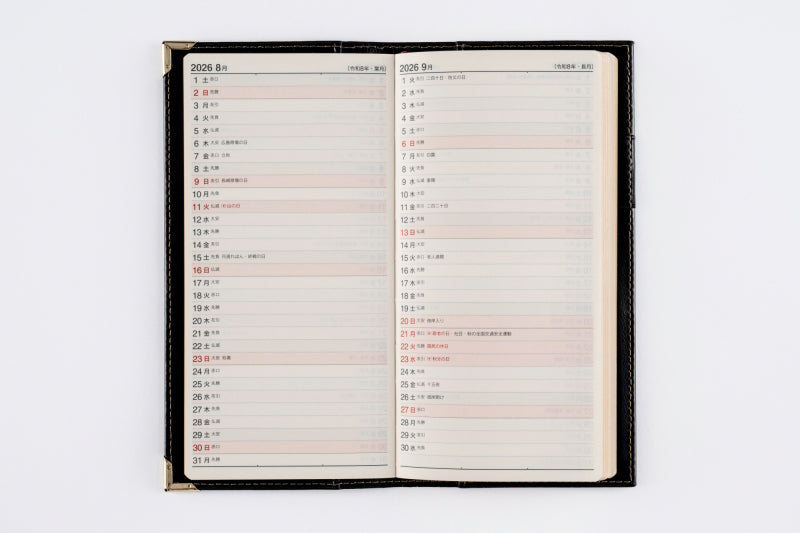 2026 8月 （令和8年・葉月）
1 土 赤口
2 日 先勝
3 月 友引
4 火 先負
5 水 仏滅
6 木 大安 広島原爆の日
7 金 赤口 立秋
8 土 先勝
9 日 友引 長崎原爆の日
10 月 先負
11 火 仏滅 ㊗山の日
12 水 大安
13 木 先勝
14 金 友引
15 土 先負 月遅れぼん・終戦の日
16 日 仏滅
17 月 大安
18 火 赤口
19 水 先勝
20 木 友引
21 金 先負
22 土 仏滅
23 日 大安 処暑
24 月 赤口
25 火 先勝
26 水 友引
27 木 先負
28 金 仏滅
29 土 大安
30 日 赤口
31 月 先勝
2026 9月 （令和8年・長月）
1 火 友引 二百十日・防災の日
2 水 先負
3 木 仏滅
4 金 大安
5 土 赤口
6 日 先勝
7 月 友引 白露
8 火 先負
9 水 仏滅 重陽
10 木 大安
11 金 友引 二百二十日
12 土 先負
13 日 仏滅
14 月 大安
15 火 赤口 老人週間
16 水 先勝
17 木 友引
18 金 先負
19 土 仏滅
20 日 大安 彼岸入り
21 月 赤口 ㊗敬老の日・社日・秋の全国交通安全運動
22 火 先勝 国民の休日
23 水 友引 ㊗秋分の日
24 木 先負
25 金 仏滅 十五夜
26 土 大安 彼岸明け
27 日 赤口
28 月 先勝
29 火 友引
30 水 先負